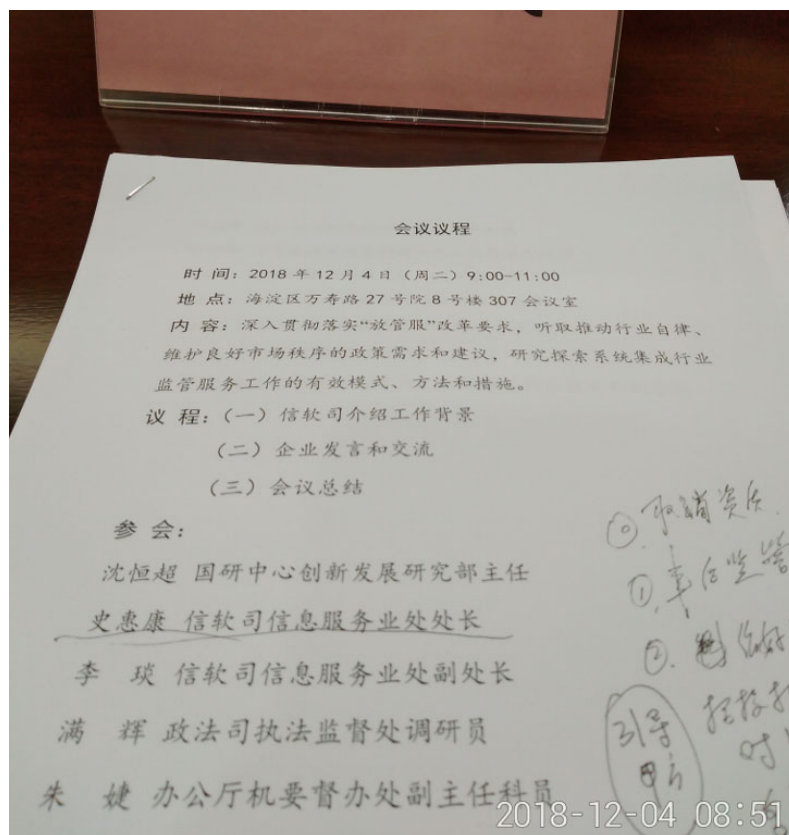 会议议程
时 间：2018 年 12 月 4 日（周二）9:00-11:00
地 点：海淀区万寿路 27 号院 8 号楼 307 会议室
内 容：深入贯彻落实“放管服”改革要求，听取推动行业自律、
维护良好市场秩序的政策需求和建议，研究探索系统集成行业
监管服务工作的有效模式、方法和措施。
议 程：（一）信软司介绍工作背景
（二）企业发言和交流
（三）会议总结
参 会：
沈恒超 国研中心创新发展研究部主任
史惠康 信软司信息服务业处处长
李 琰 信软司信息服务业处副处长
满 辉 政法司执法监督处调研员
朱 婕 办公厅机要督办处副主任科员
⓪.取消资质.
①.事后监管
②.
引导
时
2018-12-04 08:51